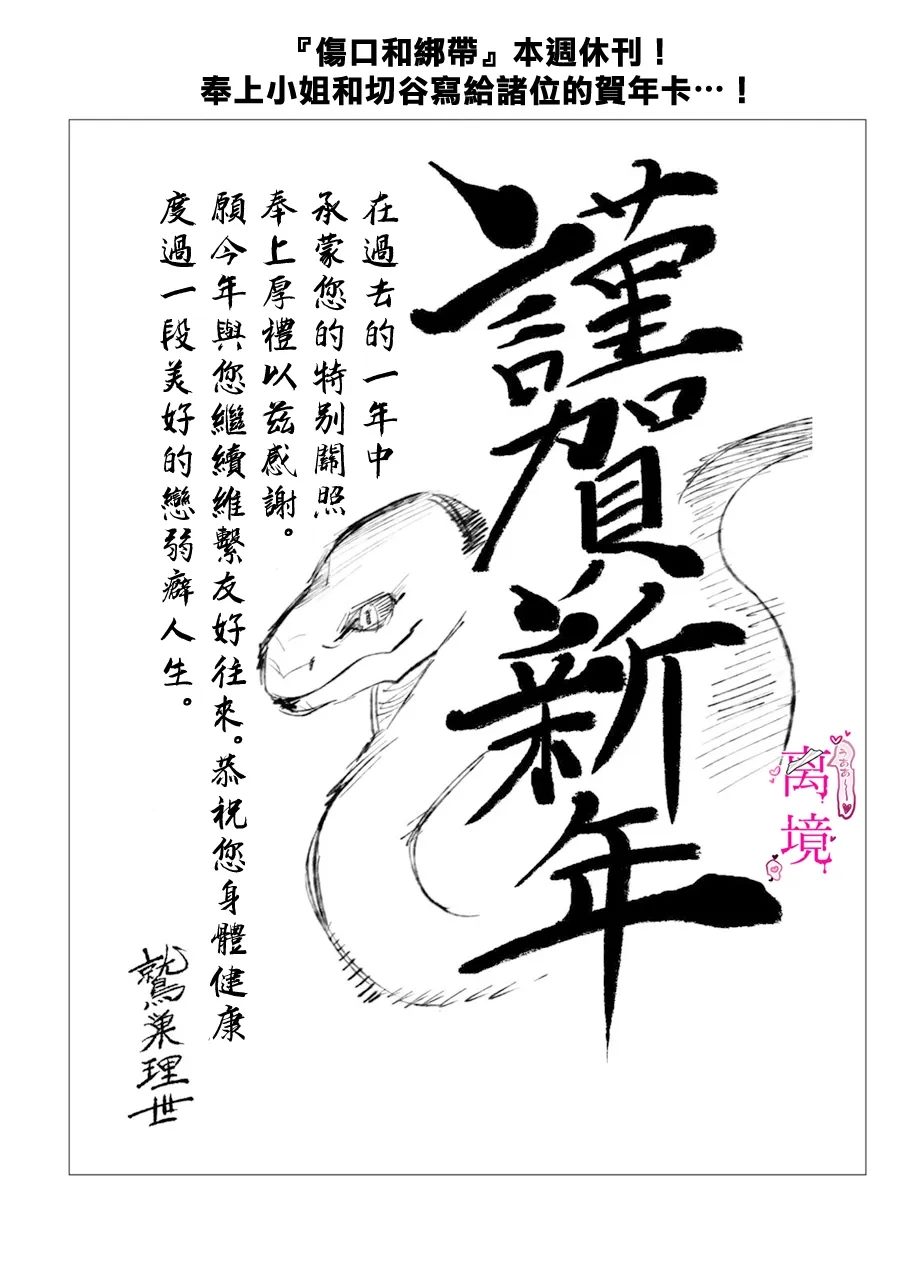 『傷口和綁帶』本週休刊！
奉上小姐和切谷寫給諸位的賀年卡…！
謹賀新年
在過去的一年中
承蒙您的特別關照
奉上厚禮以茲感謝。
願今年與您繼續維繫友好往來。恭祝您身體健康
度過一段美好的戀弱癖人生。
鷲巢理世
离境
うああ～♥